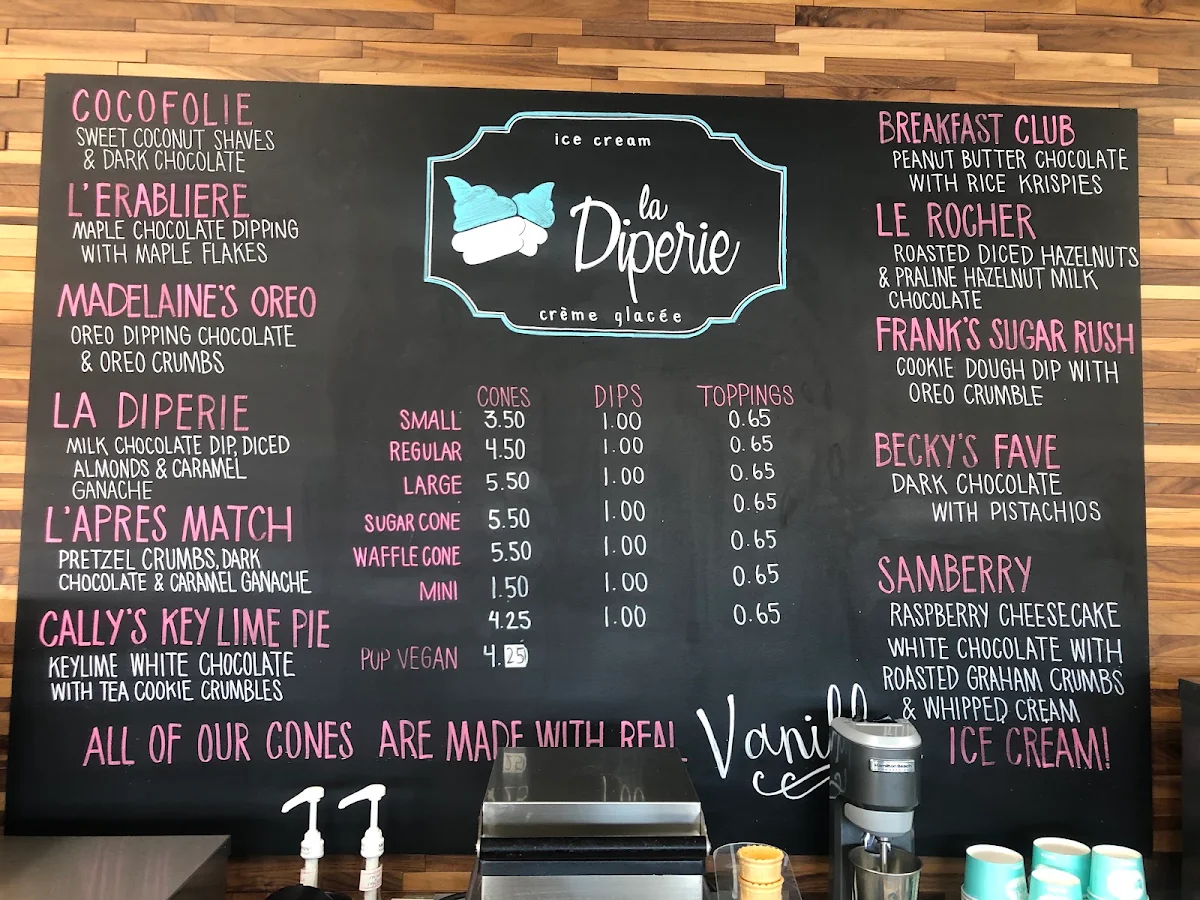 COCOFOLIE
SWEET COCONUT SHAVES
& DARK CHOCOLATE
L'ERABLIERE
MAPLE CHOCOLATE DIPPING
WITH MAPLE FLAKES
MADELAINE'S OREO
OREO DIPPING CHOCOLATE
& OREO CRUMBS
LA DIPERIE
MILK CHOCOLATE DIP, DICED
ALMONDS & CARAMEL
GANACHE
L'APRES MATCH
PRETZEL CRUMBS, DARK
CHOCOLATE & CARAMEL GANACHE
CALLY'S KEY LIME PIE
KEYLIME WHITE CHOCOLATE
WITH TEA COOKIE CRUMBLES
ice cream
la
Diperie
crème glacée
CONES DIPS TOPPINGS
SMALL 3.50 1.00 0.65
REGULAR 4.50 1.00 0.65
LARGE 5.50 1.00 0.65
SUGAR CONE 5.50 1.00 0.65
WAFFLE CONE 5.50 1.00 0.65
MINI 1.50 1.00 0.65
4.25 1.00 0.65
PUP VEGAN 4.25
BREAKFAST CLUB
PEANUT BUTTER CHOCOLATE
WITH RICE KRISPIES
LE ROCHER
ROASTED DICED HAZELNUTS
& PRALINE HAZELNUT MILK
CHOCOLATE
FRANK'S SUGAR RUSH
COOKIE DOUGH DIP WITH
OREO CRUMBLE
BECKY'S FAVE
DARK CHOCOLATE
WITH PISTACHIOS
SAMBERRY
RASPBERRY CHEESECAKE
WHITE CHOCOLATE WITH
ROASTED GRAHAM CRUMBS
& WHIPPED CREAM
ALL OF OUR CONES ARE MADE WITH REAL Vanill ICE CREAM!
Hamilton Beach